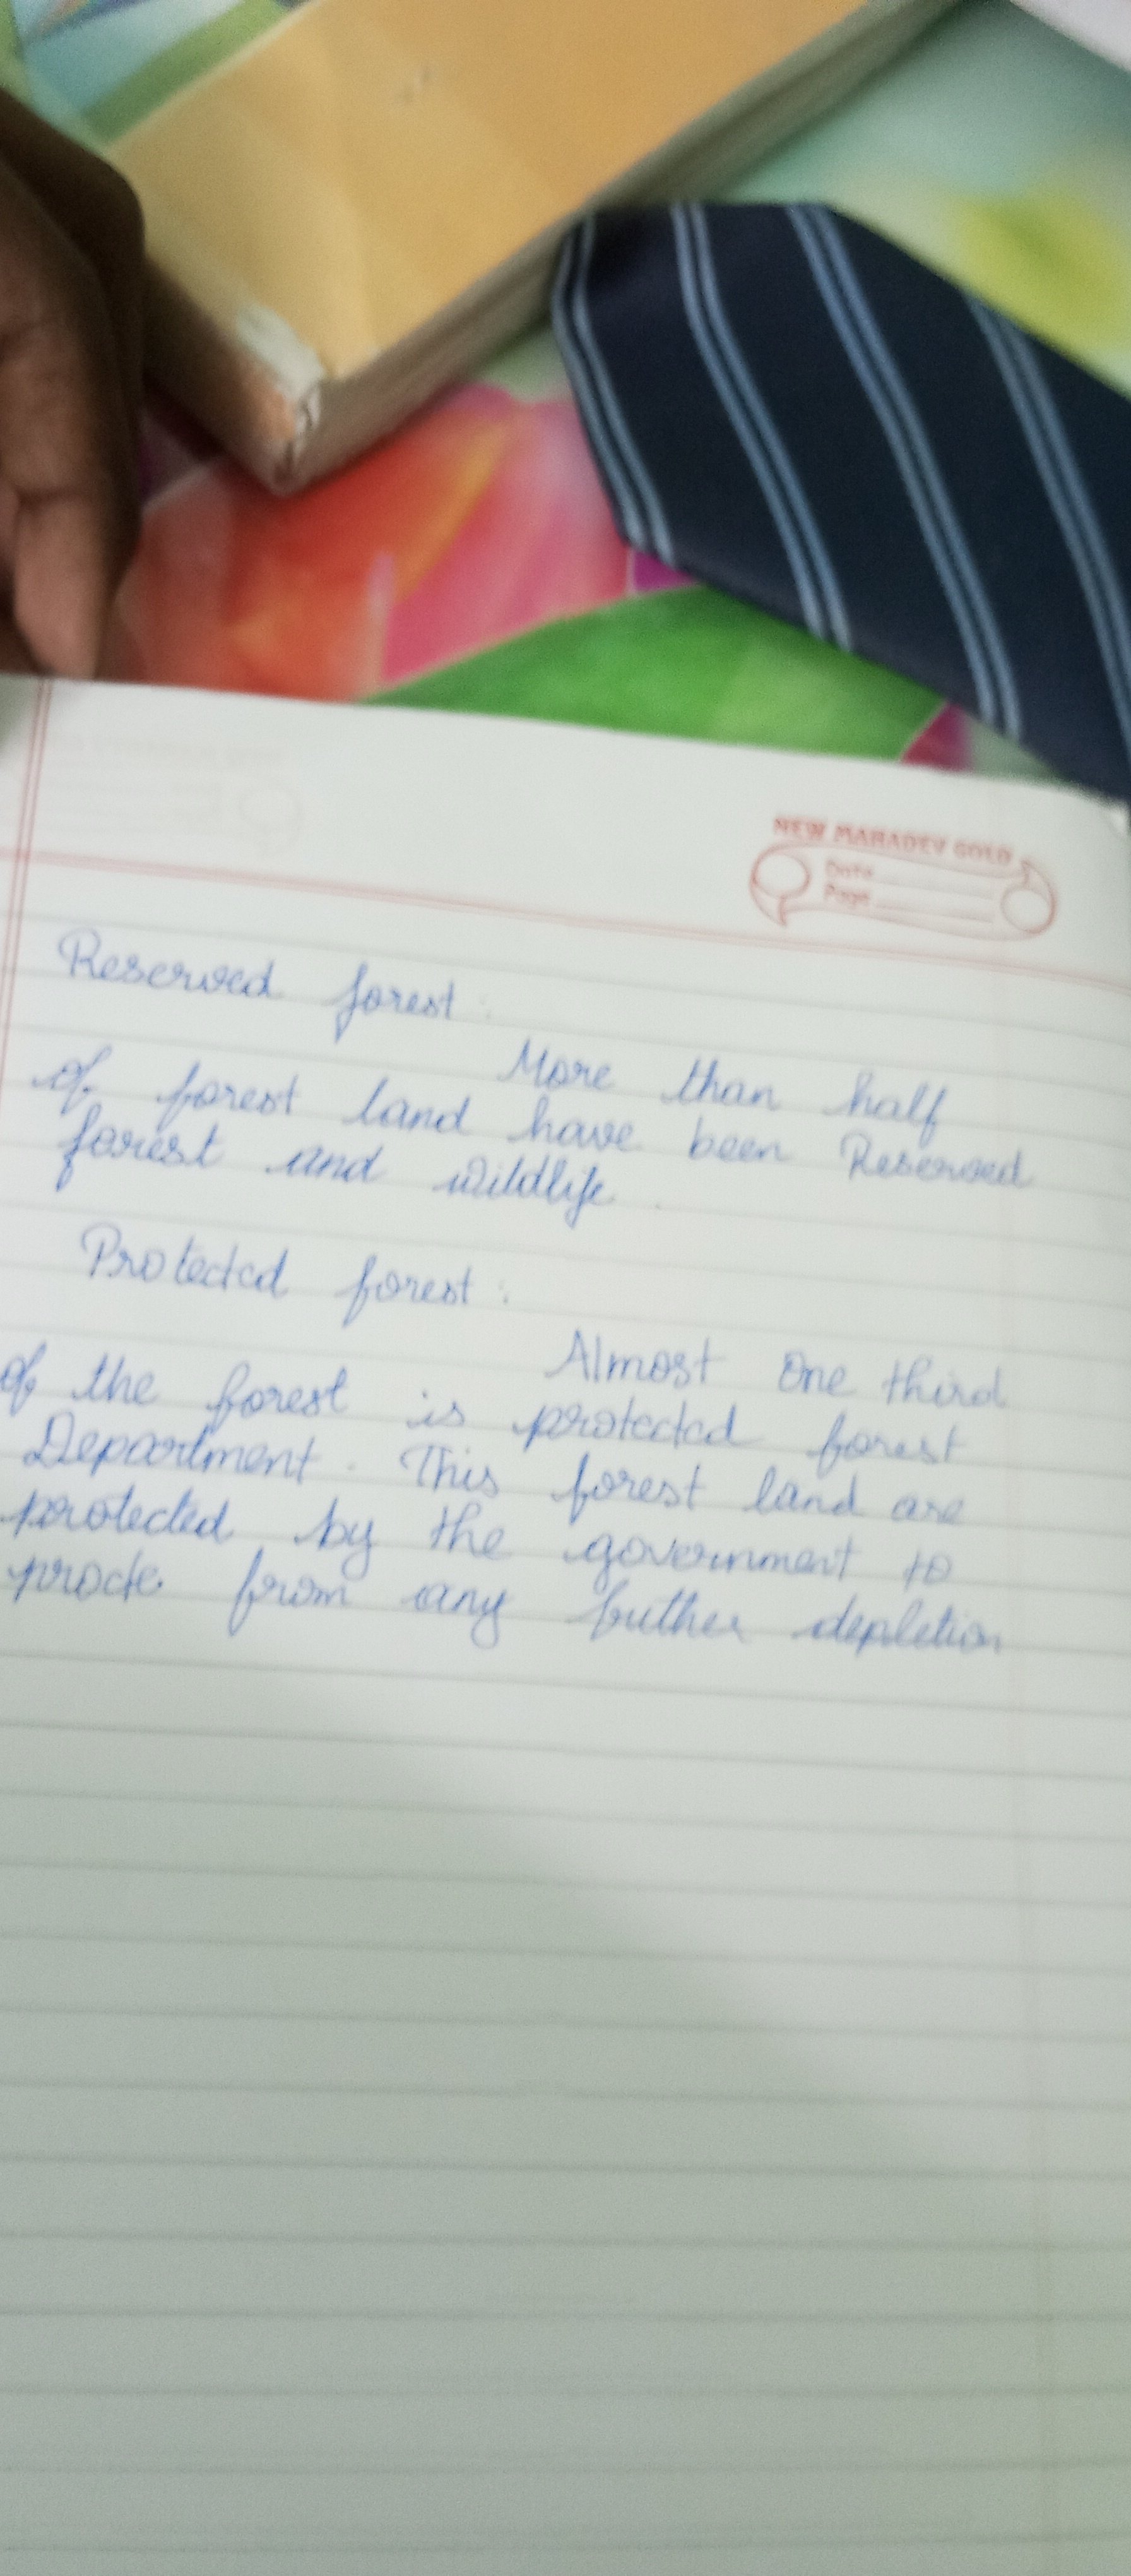 NEW MAHADEV GOLD
Date
Page
Reserved forest:
More than half
of forest land have been Reserved
forest and wildlife.
Protected forest:
Almost one third
of the forest is protected forest
Department. This forest land are
protected by the government to
procte from any futher depletion